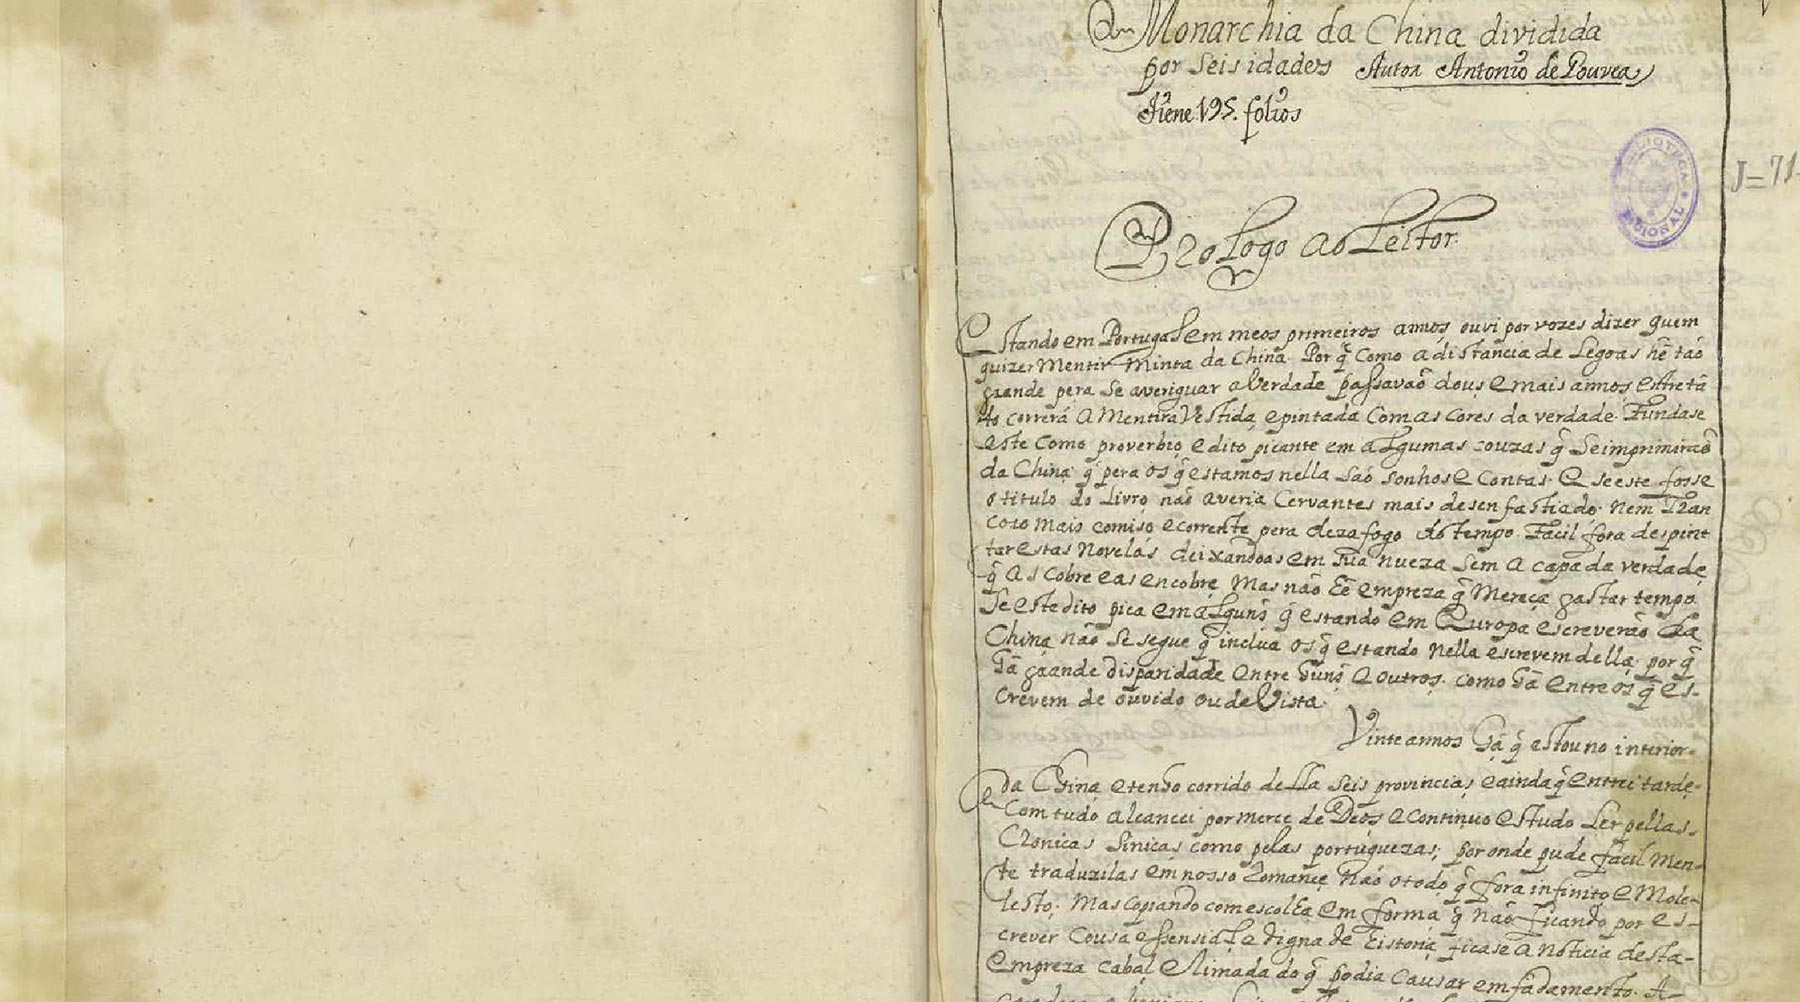 Monarchia da China dividida
por seis idades Autor Antonio de Gouvea
Tiene 195. folios
BIBLIOTECA NACIONAL
J=71
Prologo ao Leitor
Estando em Portugal em meos primeiros annos ouvi por vozes dizer quem
quizer Mentir Minta da China. Porq̃ Como a distancia de Legoas hê tão
grande pera se averiguar a Verdade passavaõ dous e mais annos entretã
to correrá a Mentira Vestida, e pintada Com as Cores da verdade. Fundase
este como proverbio, e dito picante em algumas couzas q̃ se imprimiraõ
da China: q̃ pera os q̃ estamos nella saõ sonhos e Contas. E se este fosse
o titulo do Livro, naõ averia Cervantes mais desenfastiado. Nem Tran
cozo mais comiso e corrente pera dezafogo do tempo. Facil fora despint
tar estas Novelas deixandoas em sua nueza sem a capa da verdade,
q̃ as cobre e as encobre, Mas não hê empreza q̃ Mereça gastar tempo.
Se este dito pica em alguns q̃ estando em Europa escreveraõ da
China, não se segue q̃ inclua os q̃ estando nella escrevem della, porq̃
hâ grande disparidade entre huns e outros, como hâ entre os q̃ es-
crevem de ouvido ou de Vista.
Vinte annos hâ q̃ estou no interior
da China, e tenho corrido della seis provincias, e ainda q̃ entrei tarde,
Com tudo alcancei por merce de Deos e Continuo estudo Ler pellas
Cronicas Sinicas como pelas portuguezas, por onde pude facil Men-
te traduzilas em nosso Romance, Não o todo, q̃ fora infinito e Mole-
sto. Mas Copiando com escolha em forma q̃ não ficando por es-
crever Cousa essensial e digna de historia, ficase a Noticia desta
empreza cabal e limada do q̃ podia causar emfadamento. A-